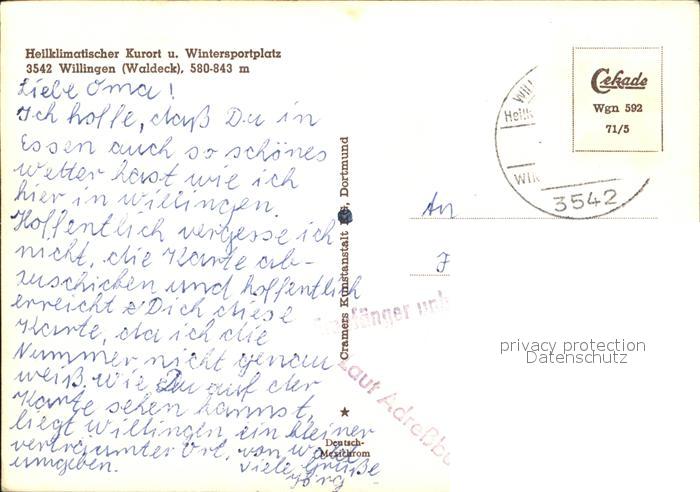 Heilklimatischer Kurort u. Wintersportplatz
3542 Willingen (Waldeck), 580-843 m
Liebe Oma!
Ich hoffe, daß Du in
Essen auch so schönes
Wetter hast wie ich
hier in Willingen.
Hoffentlich vergesse ich
nicht, die Karte ab-
zuschicken und hoffentlich
erreicht Dich diese
Karte, da ich die
Nummer nicht genau
weiß. Wie Du auf der
Karte sehen kannst,
liegt Willingen ein kleiner
verträumter Ort, von Wald
umgeben.
Viele Grüße
Jörg
Cramers Kunstanstalt KG, Dortmund
★
Deutsch-
Mexichrom
An
F
Empfänger unb
Laut Adreßbu
Heilk
3542
Cekade
Wgn 592
71/5
privacy protection
Datenschutz